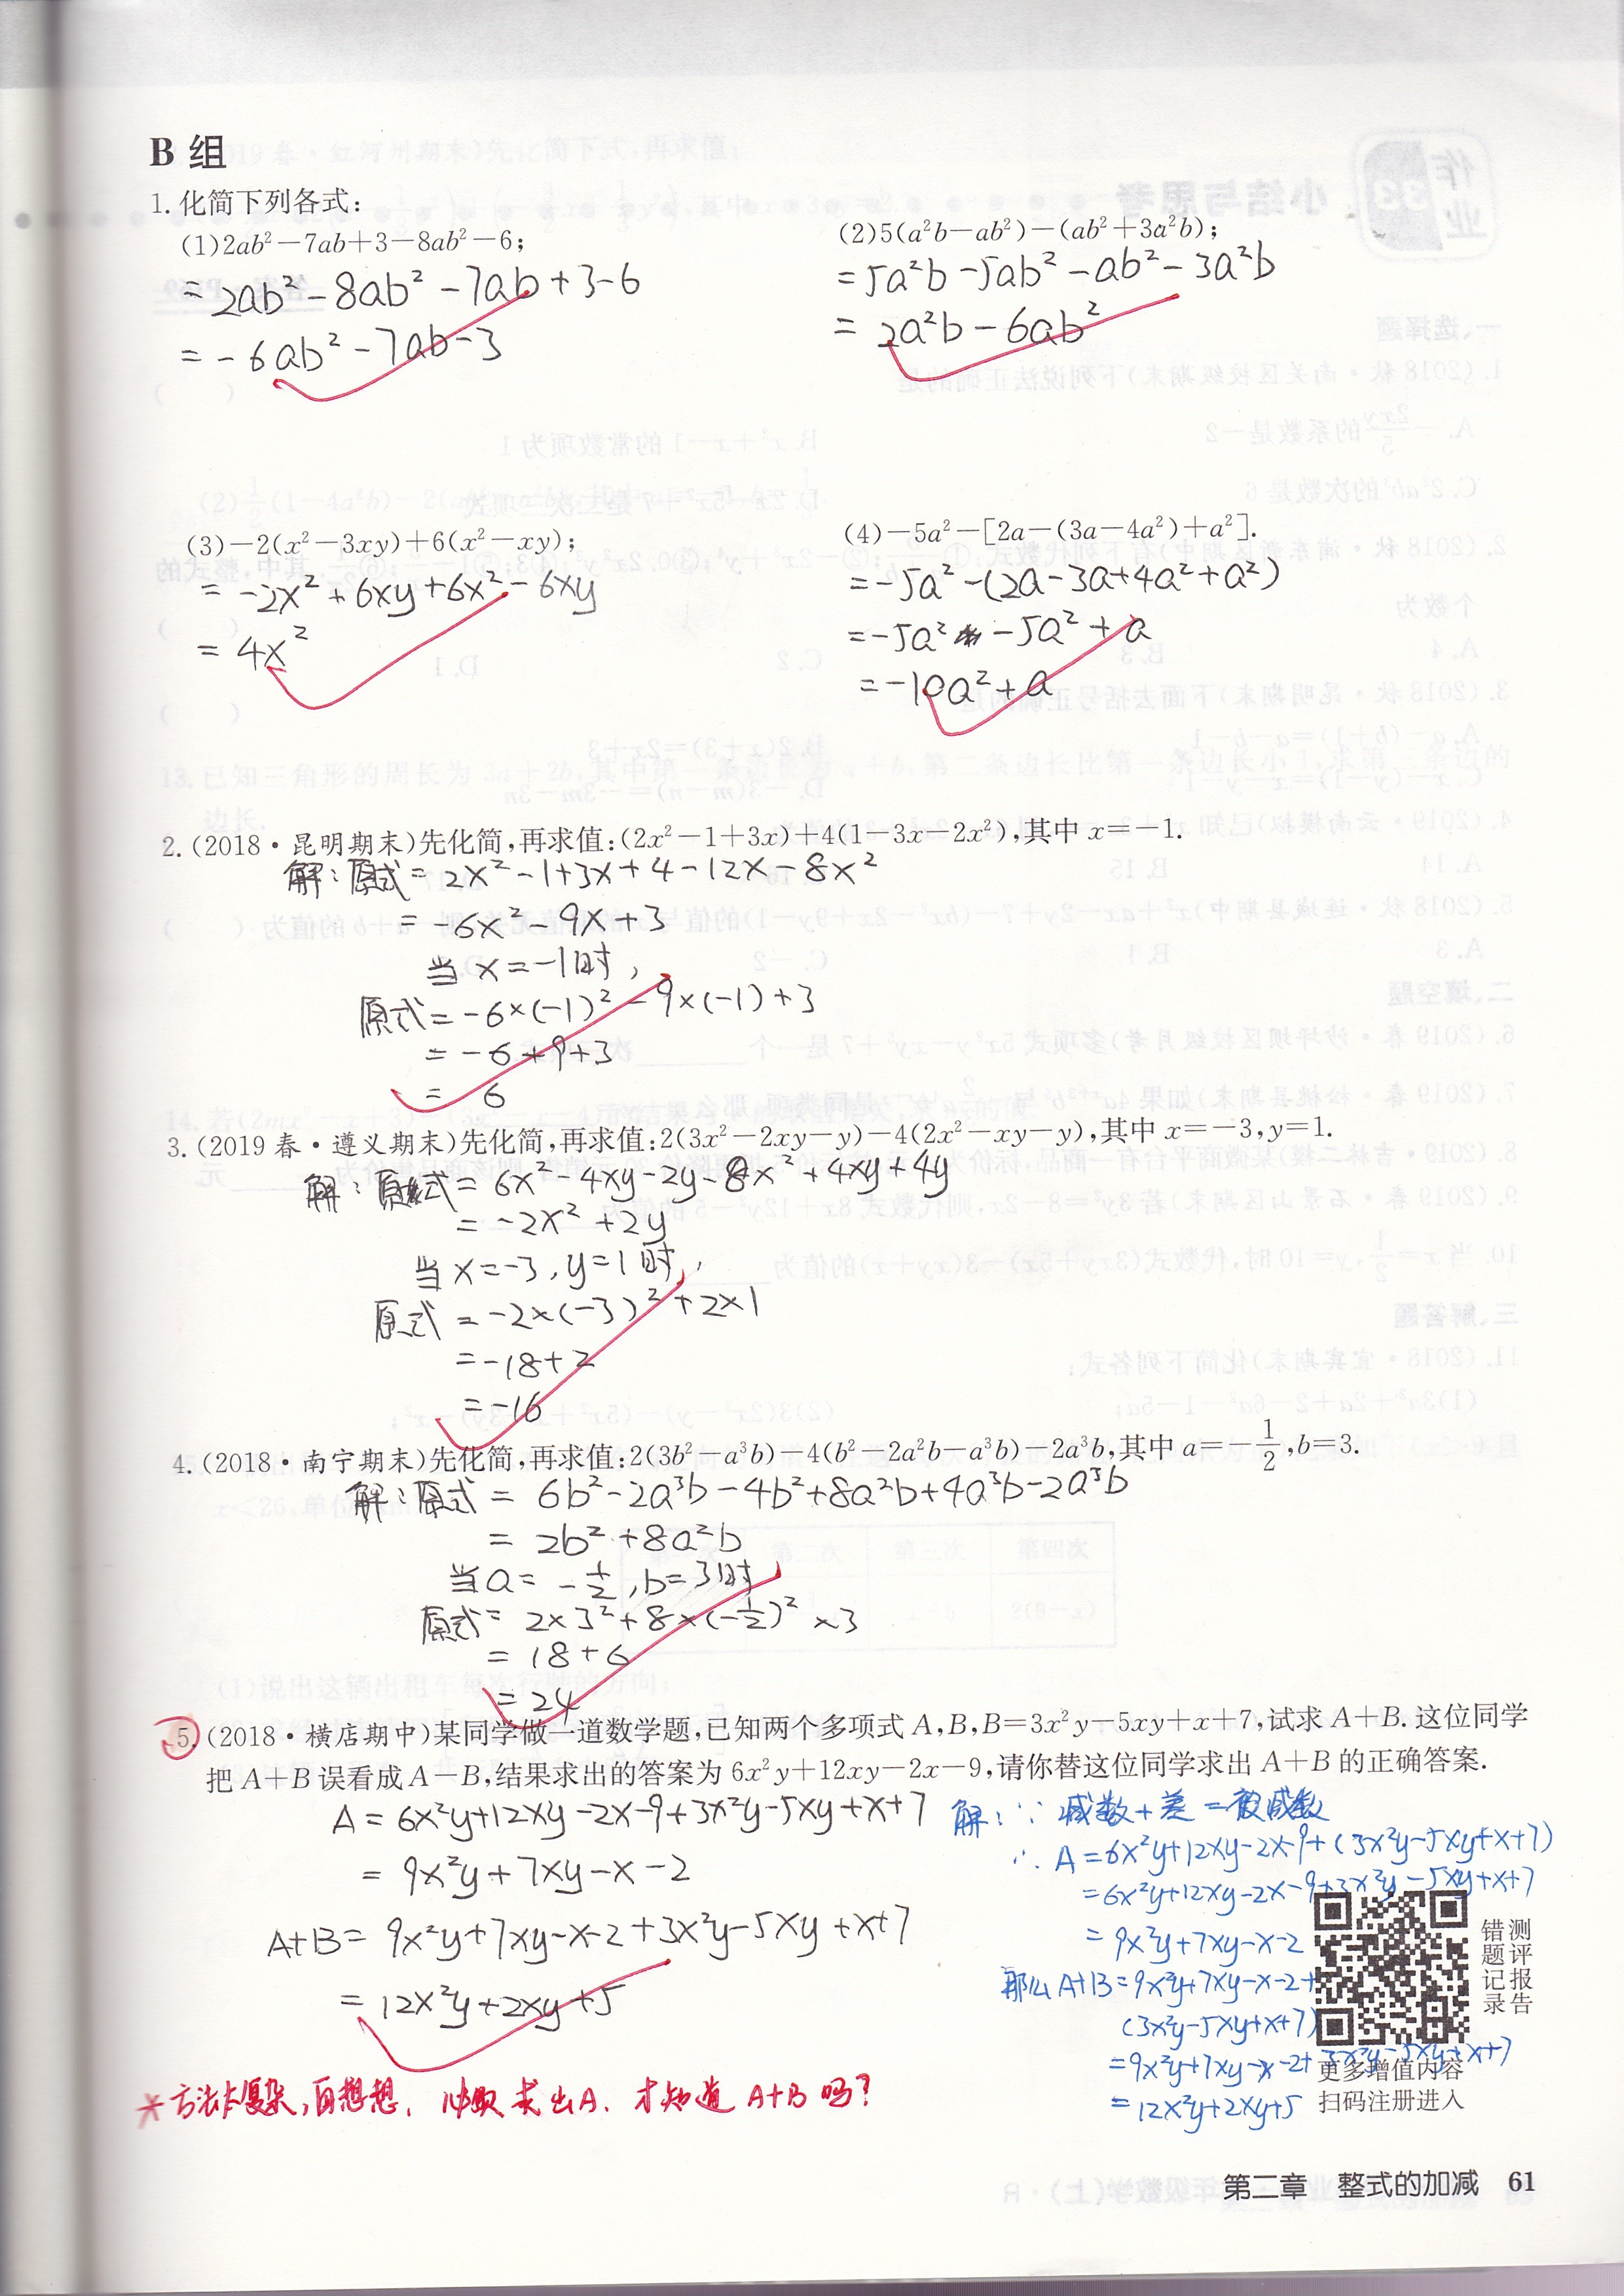 B 组
1.化简下列各式:
(1)2ab²-7ab+3-8ab²-6;
=2ab²-8ab²-7ab+3-6
=-6ab²-7ab-3
(2)5(a²b-ab²)-(ab²+3a²b);
=5a²b-5ab²-ab²-3a²b
=2a²b-6ab²
(3)-2(x²-3xy)+6(x²-xy);
=-2x²+6xy+6x²-6xy
=4x²
(4)-5a²-[2a-(3a-4a²)+a²].
=-5a²-(2a-3a+4a²+a²)
=-5a²-5a²+a
=-10a²+a
2.(2018·昆明期末)先化简,再求值:(2x²-1+3x)+4(1-3x-2x²),其中x=-1.
解:原式=2x²-1+3x+4-12x-8x²
=-6x²-9x+3
当x=-1时,
原式=-6×(-1)²-9×(-1)+3
=-6+9+3
=6
3.(2019春·遵义期末)先化简,再求值:2(3x²-2xy-y)-4(2x²-xy-y),其中x=-3,y=1.
解:原式=6x²-4xy-2y-8x²+4xy+4y
=-2x²+2y
当x=-3,y=1时,
原式=-2×(-3)²+2×1
=-18+2
=-16
4.(2018·南宁期末)先化简,再求值:2(3b²-a³b)-4(b²-2a²b-a³b)-2a³b,其中a=-1/2,b=3.
解:原式=6b²-2a³b-4b²+8a²b+4a³b-2a³b
=2b²+8a²b
当a=-1/2,b=3时
原式=2×3²+8×(-1/2)²×3
=18+6
=24
5.(2018·横店期中)某同学做一道数学题,已知两个多项式A,B,B=3x²y-5xy+x+7,试求A+B.这位同学
把A+B误看成A-B,结果求出的答案为6x²y+12xy-2x-9,请你替这位同学求出A+B的正确答案.
A=6x²y+12xy-2x-9+3x²y-5xy+x+7
=9x²y+7xy-x-2
A+B=9x²y+7xy-x-2+3x²y-5xy+x+7
=12x²y+2xy+5
解:∵减数+差=被减数
∴A=6x²y+12xy-2x-9+(3x²y-5xy+x+7)
=6x²y+12xy-2x-9+3x²y-5xy+x+7
=9x²y+7xy-x-2
那么A+B=9x²y+7xy-x-2+
(3x²y-5xy+x+7)
=9x²y+7xy-x-2+3x²y-5xy+x+7
=12x²y+2xy+5
测评报告
错题记录
更多增值内容
扫码注册进入
*方法太复杂,再想想,必须求出A,才知道A+B吗?
第二章 整式的加减 61